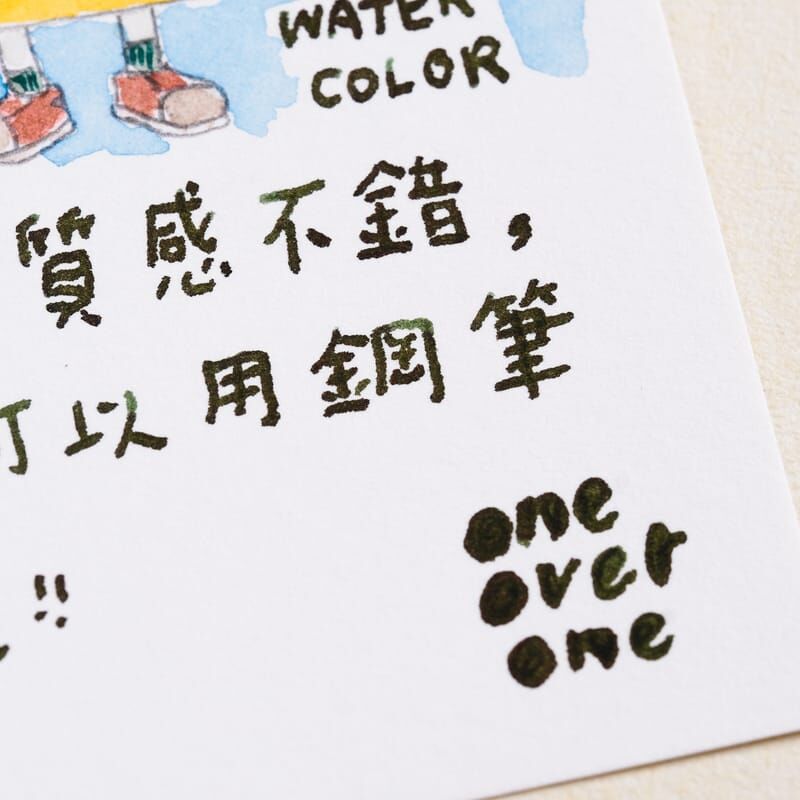 WATER
COLOR
質感不錯,
可以用鋼筆
!!
one
over
one